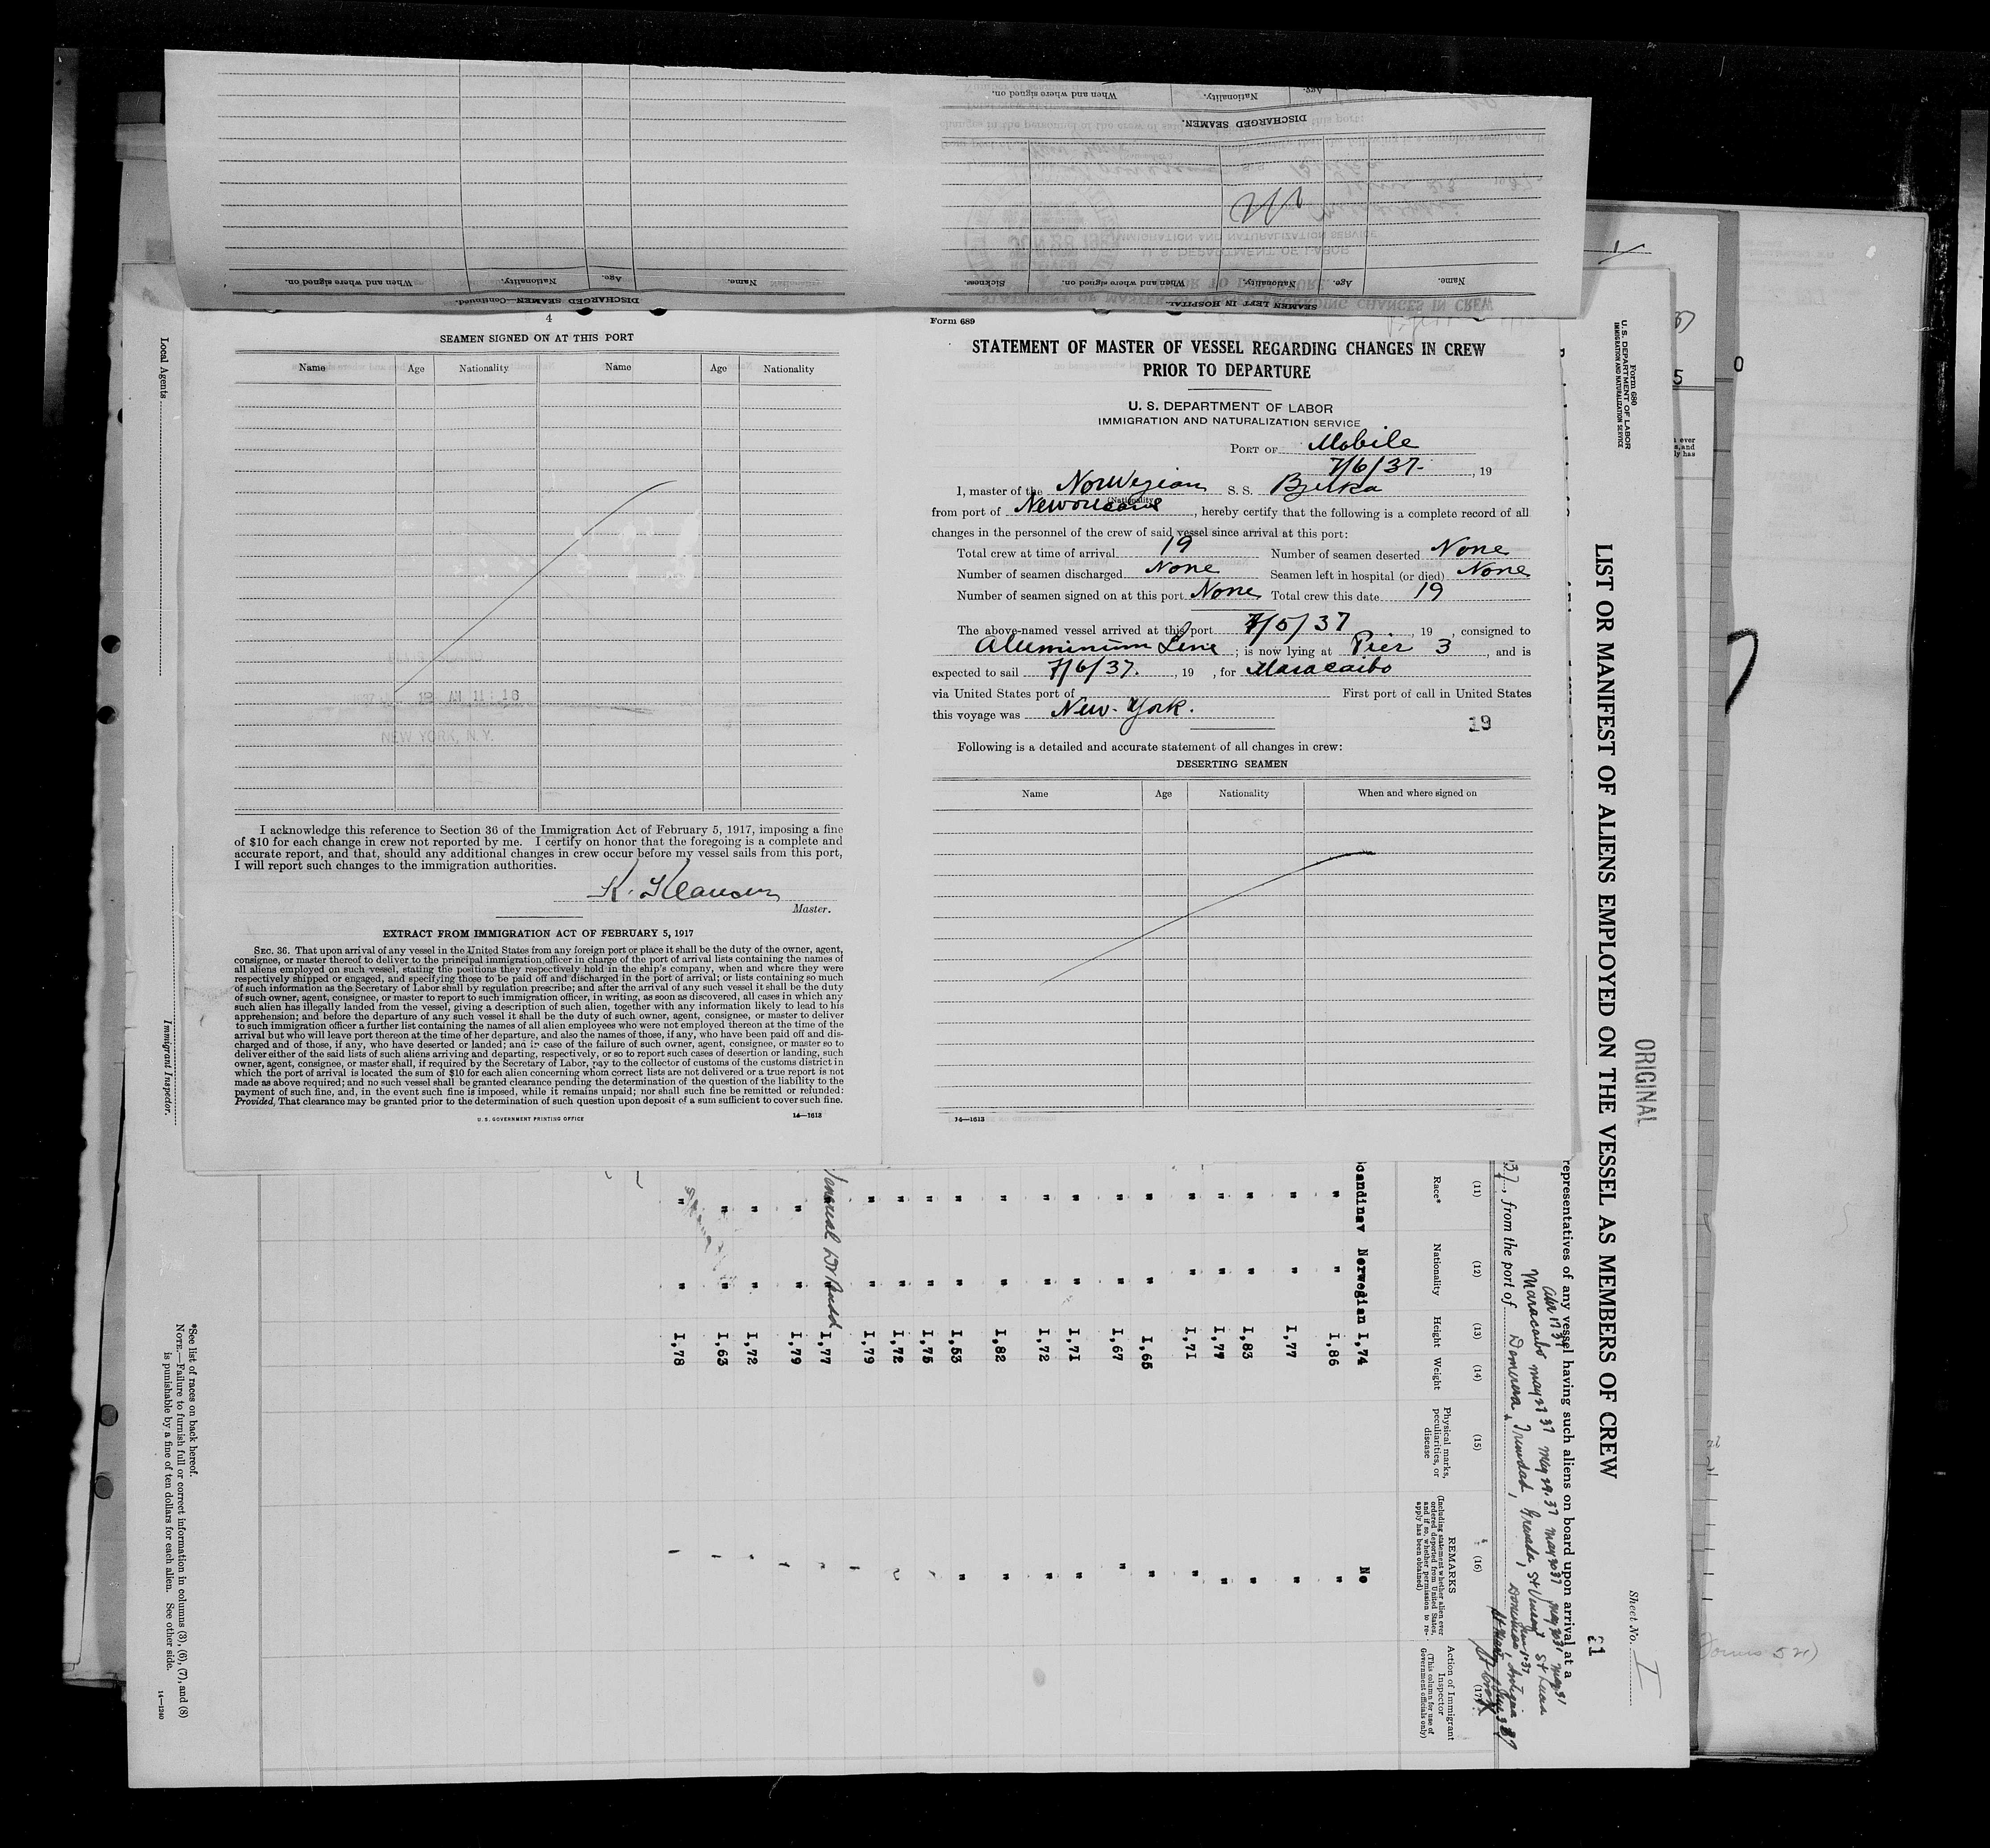 When and where signed on.
Nationality.
Age.
DISCHARGED SEAMEN.
Name.
Age.
Nationality.
When and where signed on.
Sickness.
SEAMEN LEFT IN HOSPITAL.
Name.
Age.
Nationality.
When and where signed on.
DISCHARGED SEAMEN—Continued.
4
SEAMEN SIGNED ON AT THIS PORT
Name Age Nationality Name Age Nationality
12 AM 11:16
NEW YORK, N.Y.
I acknowledge this reference to Section 36 of the Immigration Act of February 5, 1917, imposing a fine
of $10 for each change in crew not reported by me. I certify on honor that the foregoing is a complete and
accurate report, and that, should any additional changes in crew occur before my vessel sails from this port,
I will report such changes to the immigration authorities.
K. Klausen
Master.
EXTRACT FROM IMMIGRATION ACT OF FEBRUARY 5, 1917
SEC. 36. That upon arrival of any vessel in the United States from any foreign port or place it shall be the duty of the owner, agent,
consignee, or master thereof to deliver to the principal immigration officer in charge of the port of arrival lists containing the names of
all aliens employed on such vessel, stating the positions they respectively hold in the ship's company, when and where they were
respectively shipped or engaged, and specifying those to be paid off and discharged in the port of arrival; or lists containing so much
of such information as the Secretary of Labor shall by regulation prescribe; and after the arrival of any such vessel it shall be the duty
of such owner, agent, consignee, or master to report to such immigration officer, in writing, as soon as discovered, all cases in which any
such alien has illegally landed from the vessel, giving a description of such alien, together with any information likely to lead to his
apprehension; and before the departure of any such vessel it shall be the duty of such owner, agent, consignee, or master to deliver
to such immigration officer a further list containing the names of all alien employees who were not employed thereon at the time of the
arrival but who will leave port thereon at the time of her departure, and also the names of those, if any, who have been paid off and dis-
charged and of those, if any, who have deserted or landed; and in case of the failure of such owner, agent, consignee, or master so to
deliver either of the said lists of such aliens arriving and departing, respectively, or so to report such cases of desertion or landing, such
owner, agent, consignee, or master shall, if required by the Secretary of Labor, pay to the collector of customs of the customs district in
which the port of arrival is located the sum of $10 for each alien concerning whom correct lists are not delivered or a true report is not
made as above required; and no such vessel shall be granted clearance pending the determination of the question of the liability to the
payment of such fine, and, in the event such fine is imposed, while it remains unpaid; nor shall such fine be remitted or refunded:
Provided, That clearance may be granted prior to the determination of such question upon deposit of a sum sufficient to cover such fine.
U. S. GOVERNMENT PRINTING OFFICE 14—1613
Form 689
STATEMENT OF MASTER OF VESSEL REGARDING CHANGES IN CREW
PRIOR TO DEPARTURE
U. S. DEPARTMENT OF LABOR
IMMIGRATION AND NATURALIZATION SERVICE
PORT OF Mobile
7/6/37, 19
I, master of the Norwegian S. S. Bjerka
(Nationality)
from port of New Orleans, hereby certify that the following is a complete record of all
changes in the personnel of the crew of said vessel since arrival at this port:
Total crew at time of arrival 19 Number of seamen deserted None
Number of seamen discharged None Seamen left in hospital (or died) None
Number of seamen signed on at this port None Total crew this date 19
The above-named vessel arrived at this port 7/5/37, 19 , consigned to
Aluminum Line; is now lying at Pier 3, and is
expected to sail 7/6/37., 19 , for Maracaibo
via United States port of First port of call in United States
this voyage was New-York.
19
Following is a detailed and accurate statement of all changes in crew:
DESERTING SEAMEN
Name Age Nationality When and where signed on
14—1613
Form 680
U. S. DEPARTMENT OF LABOR
IMMIGRATION AND NATURALIZATION SERVICE
ORIGINAL
Sheet No. I
LIST OR MANIFEST OF ALIENS EMPLOYED ON THE VESSEL AS MEMBERS OF CREW
21
representatives of any vessel having such aliens on board upon arrival at a
Maracaibo may 27 37 may 29.37
37, from the port of Demerara, Trinidad, Grenada, St Vincent St Lucia
Dominica, Antigua
St Croix
(11) (12) (13) (14) (15) (16) (17)
Race* Nationality Height Weight
Physical marks, peculiarities, or disease
REMARKS
(Including statement whether alien ever ordered deported from United States, and if so, whether permission to re-apply has been obtained)
Action of Immigrant Inspector
(This column for use of Government officials only)
Scandinav Norwegian 1,74 No
" " 1,86 "
" " 1,77 "
" " 1,83 "
" " 1,77 "
" " 1,71 "
" " 1,65 "
" " 1,67 "
" " 1,71 "
" " 1,72 "
" " 1,82 "
" " 1,53 "
" " 1,75
" " 1,72
" " 1,79
1,77
" " 1,79
" " 1,72
" " 1,63
" " 1,78
Local Agents
Immigrant Inspector.
*See list of races on back hereof.
NOTE.—Failure to furnish full or correct information in columns (3), (6), (7), and (8)
is punishable by a fine of ten dollars for each alien. See other side.
14—1240